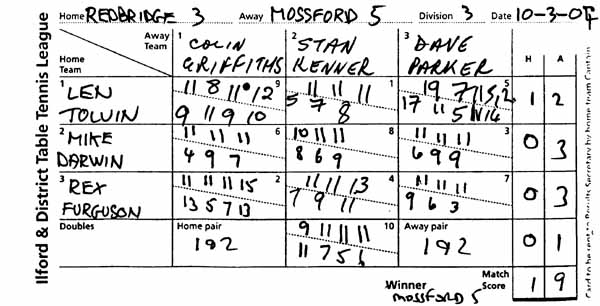 Ilford & District Table Tennis League
Home REDBRIDGE 3 Away MOSSFORD 5 Division 3 Date 10-3-07
Away Team
Home Team
1 COLIN GRIFFITHS
2 STAN KENNER
3 DAVE PARKER
H A
1 LEN TOLVIN
11 8 11 10 12 9
9 11 9 10
11 11 11 1
5 7 8
19 7 11 5 12 5
17 11 5 14
1 2
2 MIKE DARWIN
11 11 11 6
4 9 7
10 11 11 8
8 6 9
11 11 11 3
6 9 9
0 3
3 REX FURGUSON
11 11 11 15 2
13 5 7 13
11 11 13 4
7 9 11
11 11 11 7
9 6 3
0 3
Doubles
Home pair
1&2
9 11 11 11 10
11 7 5 6
Away pair
1&2
0 1
Winner MOSSFORD 5
Match Score
1 9